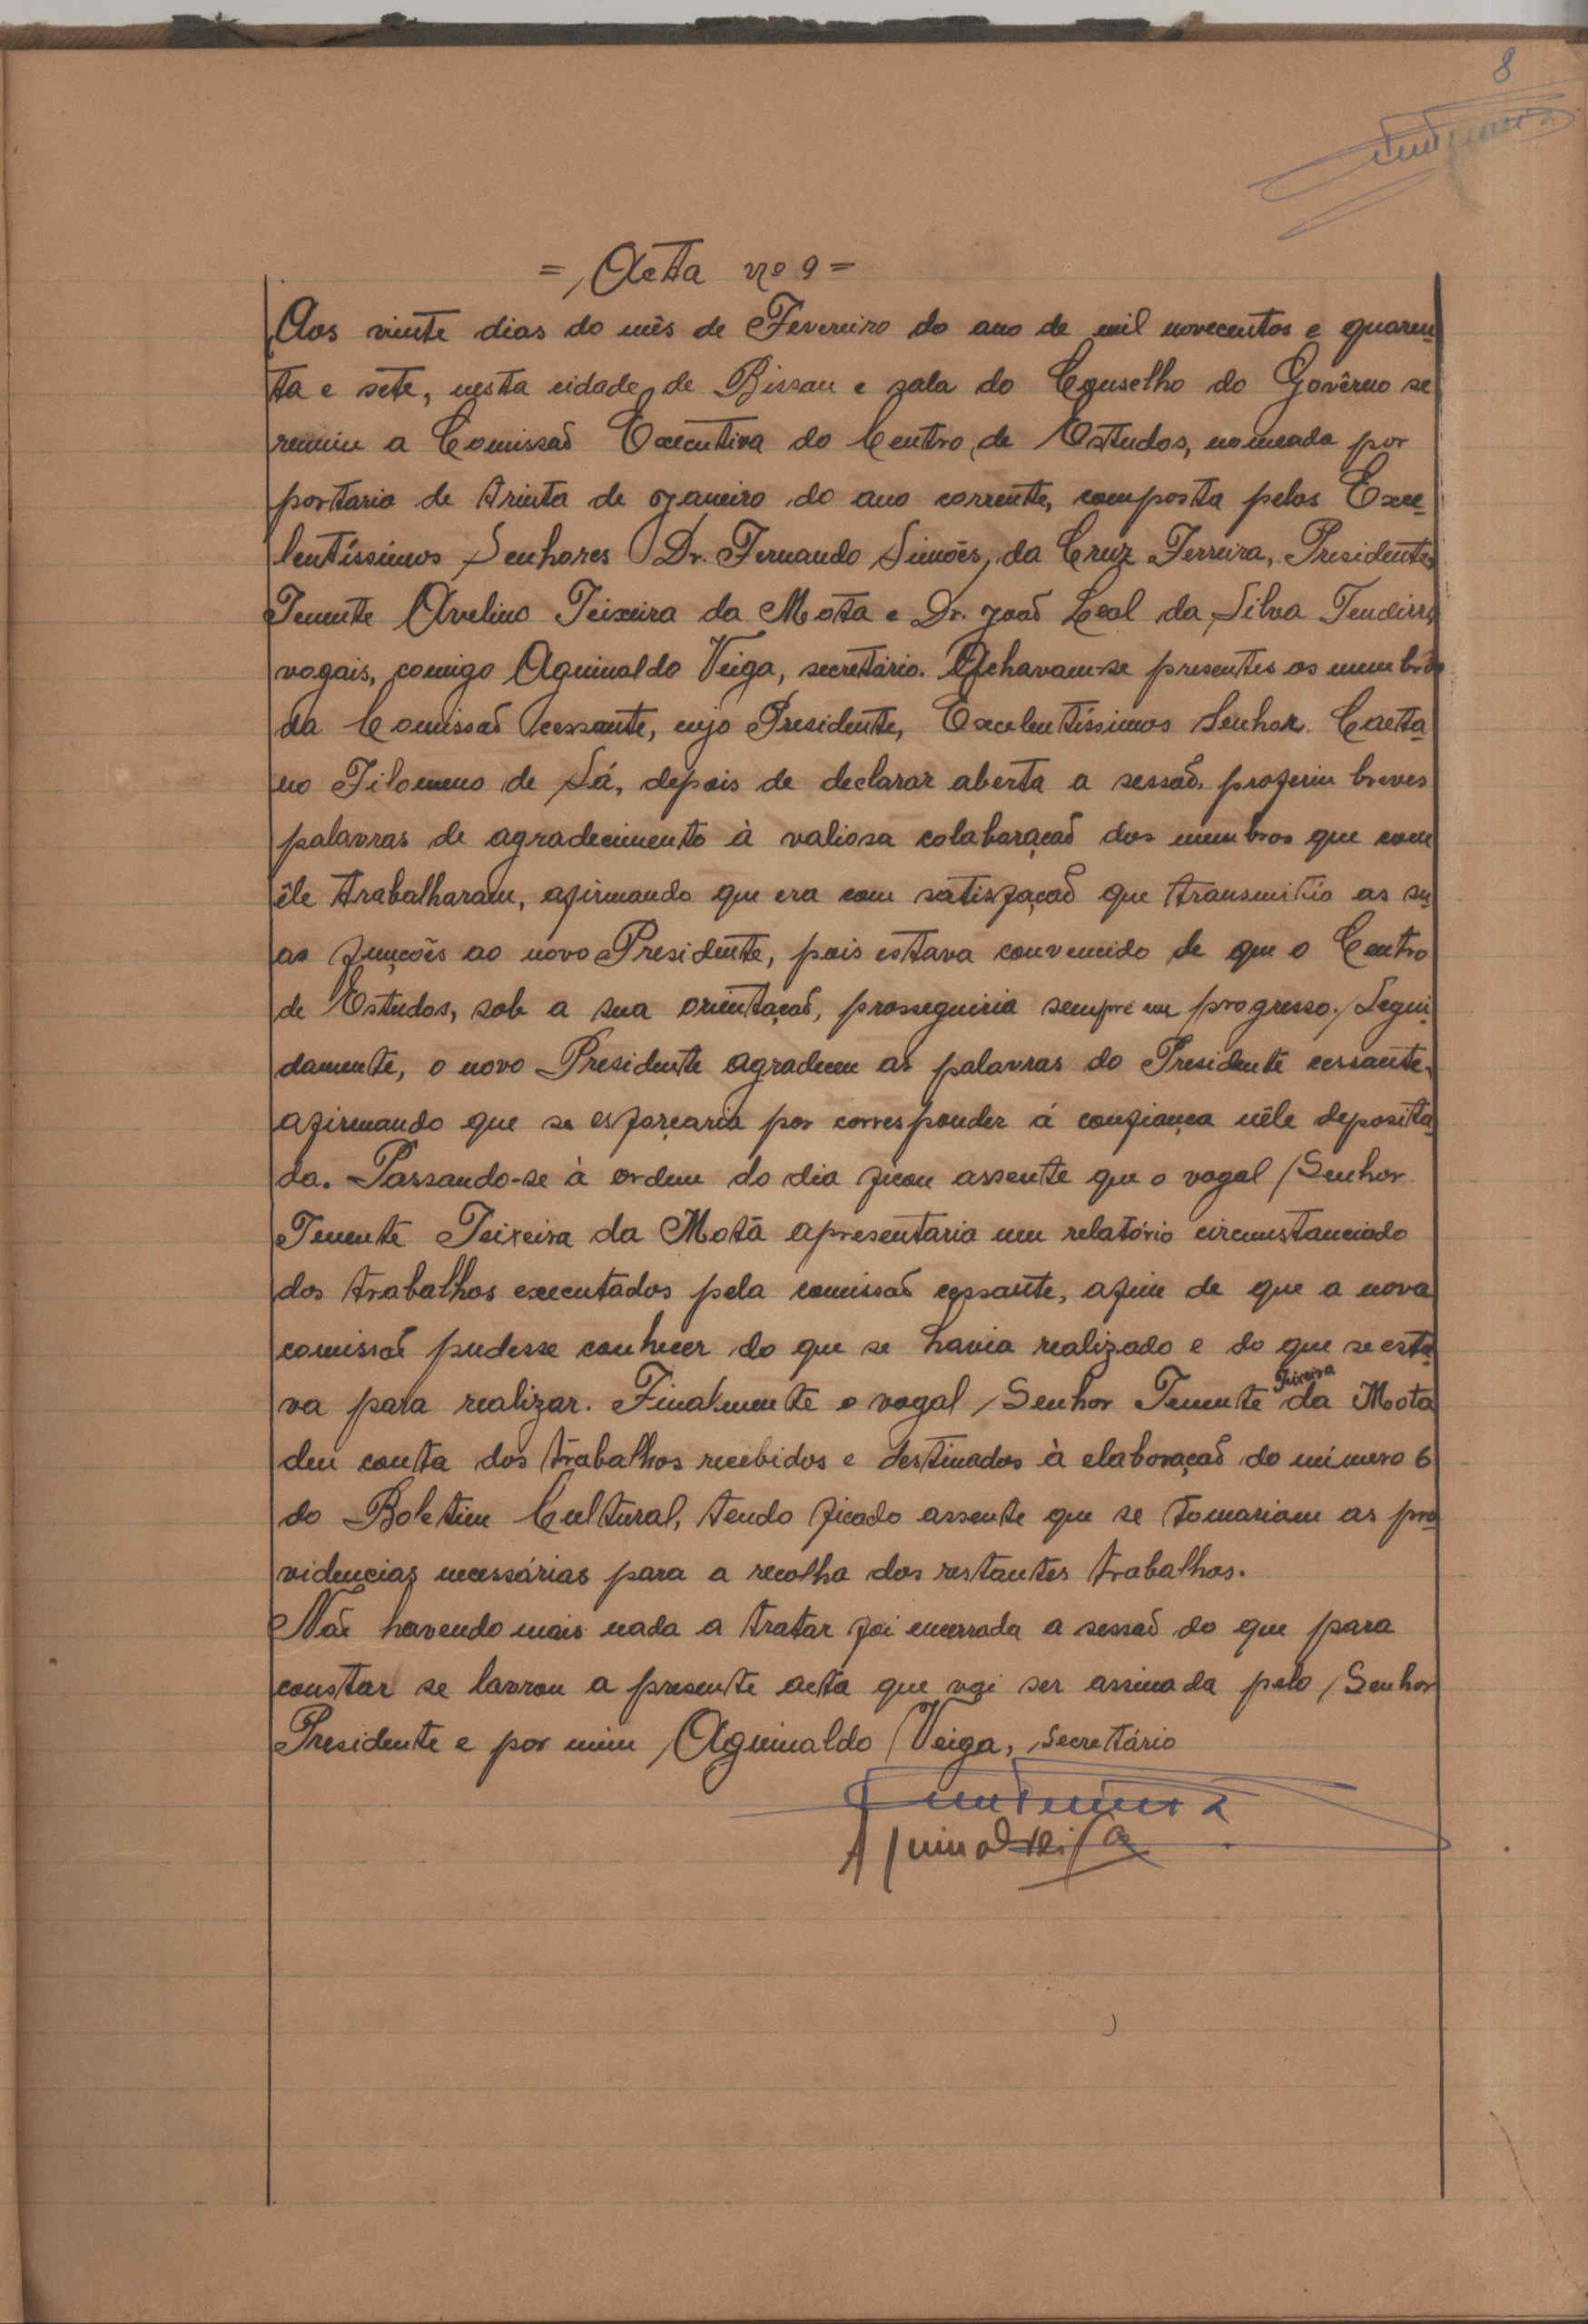 8
= Acta nº 9 =
Aos vinte dias do mês de Fevereiro do ano de mil novecentos e quaren-
ta e sete, nesta cidade de Bissau e sala do Conselho do Govêrno se
reuniu a Comissaõ Executiva do Centro de Estudos, nomeada por
portaria de trinta de Janeiro do ano corrente, composta pelos Exce-
lentíssimos Senhores Dr. Fernando Simões da Cruz Ferreira, Presidente,
Tenente Avelino Teixeira da Mota e Dr. Joaõ Leal da Silva Tendeiro,
vogais, comigo Aguinaldo Veiga, secretário. Achavam-se presentes os membros
da Comissaõ cessante, cujo Presidente, Excelentíssimos Senhor Caeta-
no Filomeno de Sá, depois de declarar aberta a sessaõ, proferiu breves
palavras de agradecimento à valiosa colaboraçaõ dos membros que com
êle trabalharam, afirmando que era com satisfaçaõ que transmitia as su-
as funções ao novo Presidente, pois estava convencido de que o Centro
de Estudos, sob a sua orientaçaõ, prosseguiria sempre em progresso. Segui-
damente, o novo Presidente agradeceu as palavras do Presidente cessante,
afirmando que se esforçaria por corresponder á confiança nêle deposita-
da. Passando-se à ordem do dia ficou assente que o vogal Senhor
Tenente Teixeira da Mota apresentaria um relatório circunstanciado
dos trabalhos executados pela comissaõ cessante, afim de que a nova
comissaõ pudesse conhecer do que se havia realizado e do que se esta-
va para realizar. Finalmente o vogal Senhor Tenente Teixeira da Mota
deu conta dos trabalhos recebidos e destinados à elaboraçaõ do número 6
do Boletim Cultural, tendo ficado assente que se tomariam as pro-
videncias necessárias para a recolha dos restantes trabalhos.
Naõ havendo mais nada a tratar foi encerrada a sessaõ do que para
constar se lavrou a presente acta que vai ser assinada pelo Senhor
Presidente e por mim Aguinaldo Veiga, Secretário